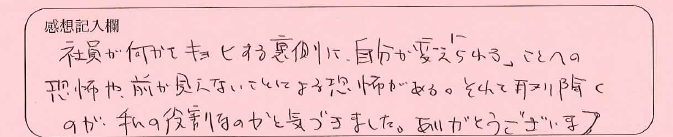 感想記入欄
社員が何かをキョヒする裏側に、「自分が変えられる」ことへの
恐怖や、前が見えないことによる恐怖がある。それを取り除く
のが、私の役割なのかと気づきました。ありがとうございます